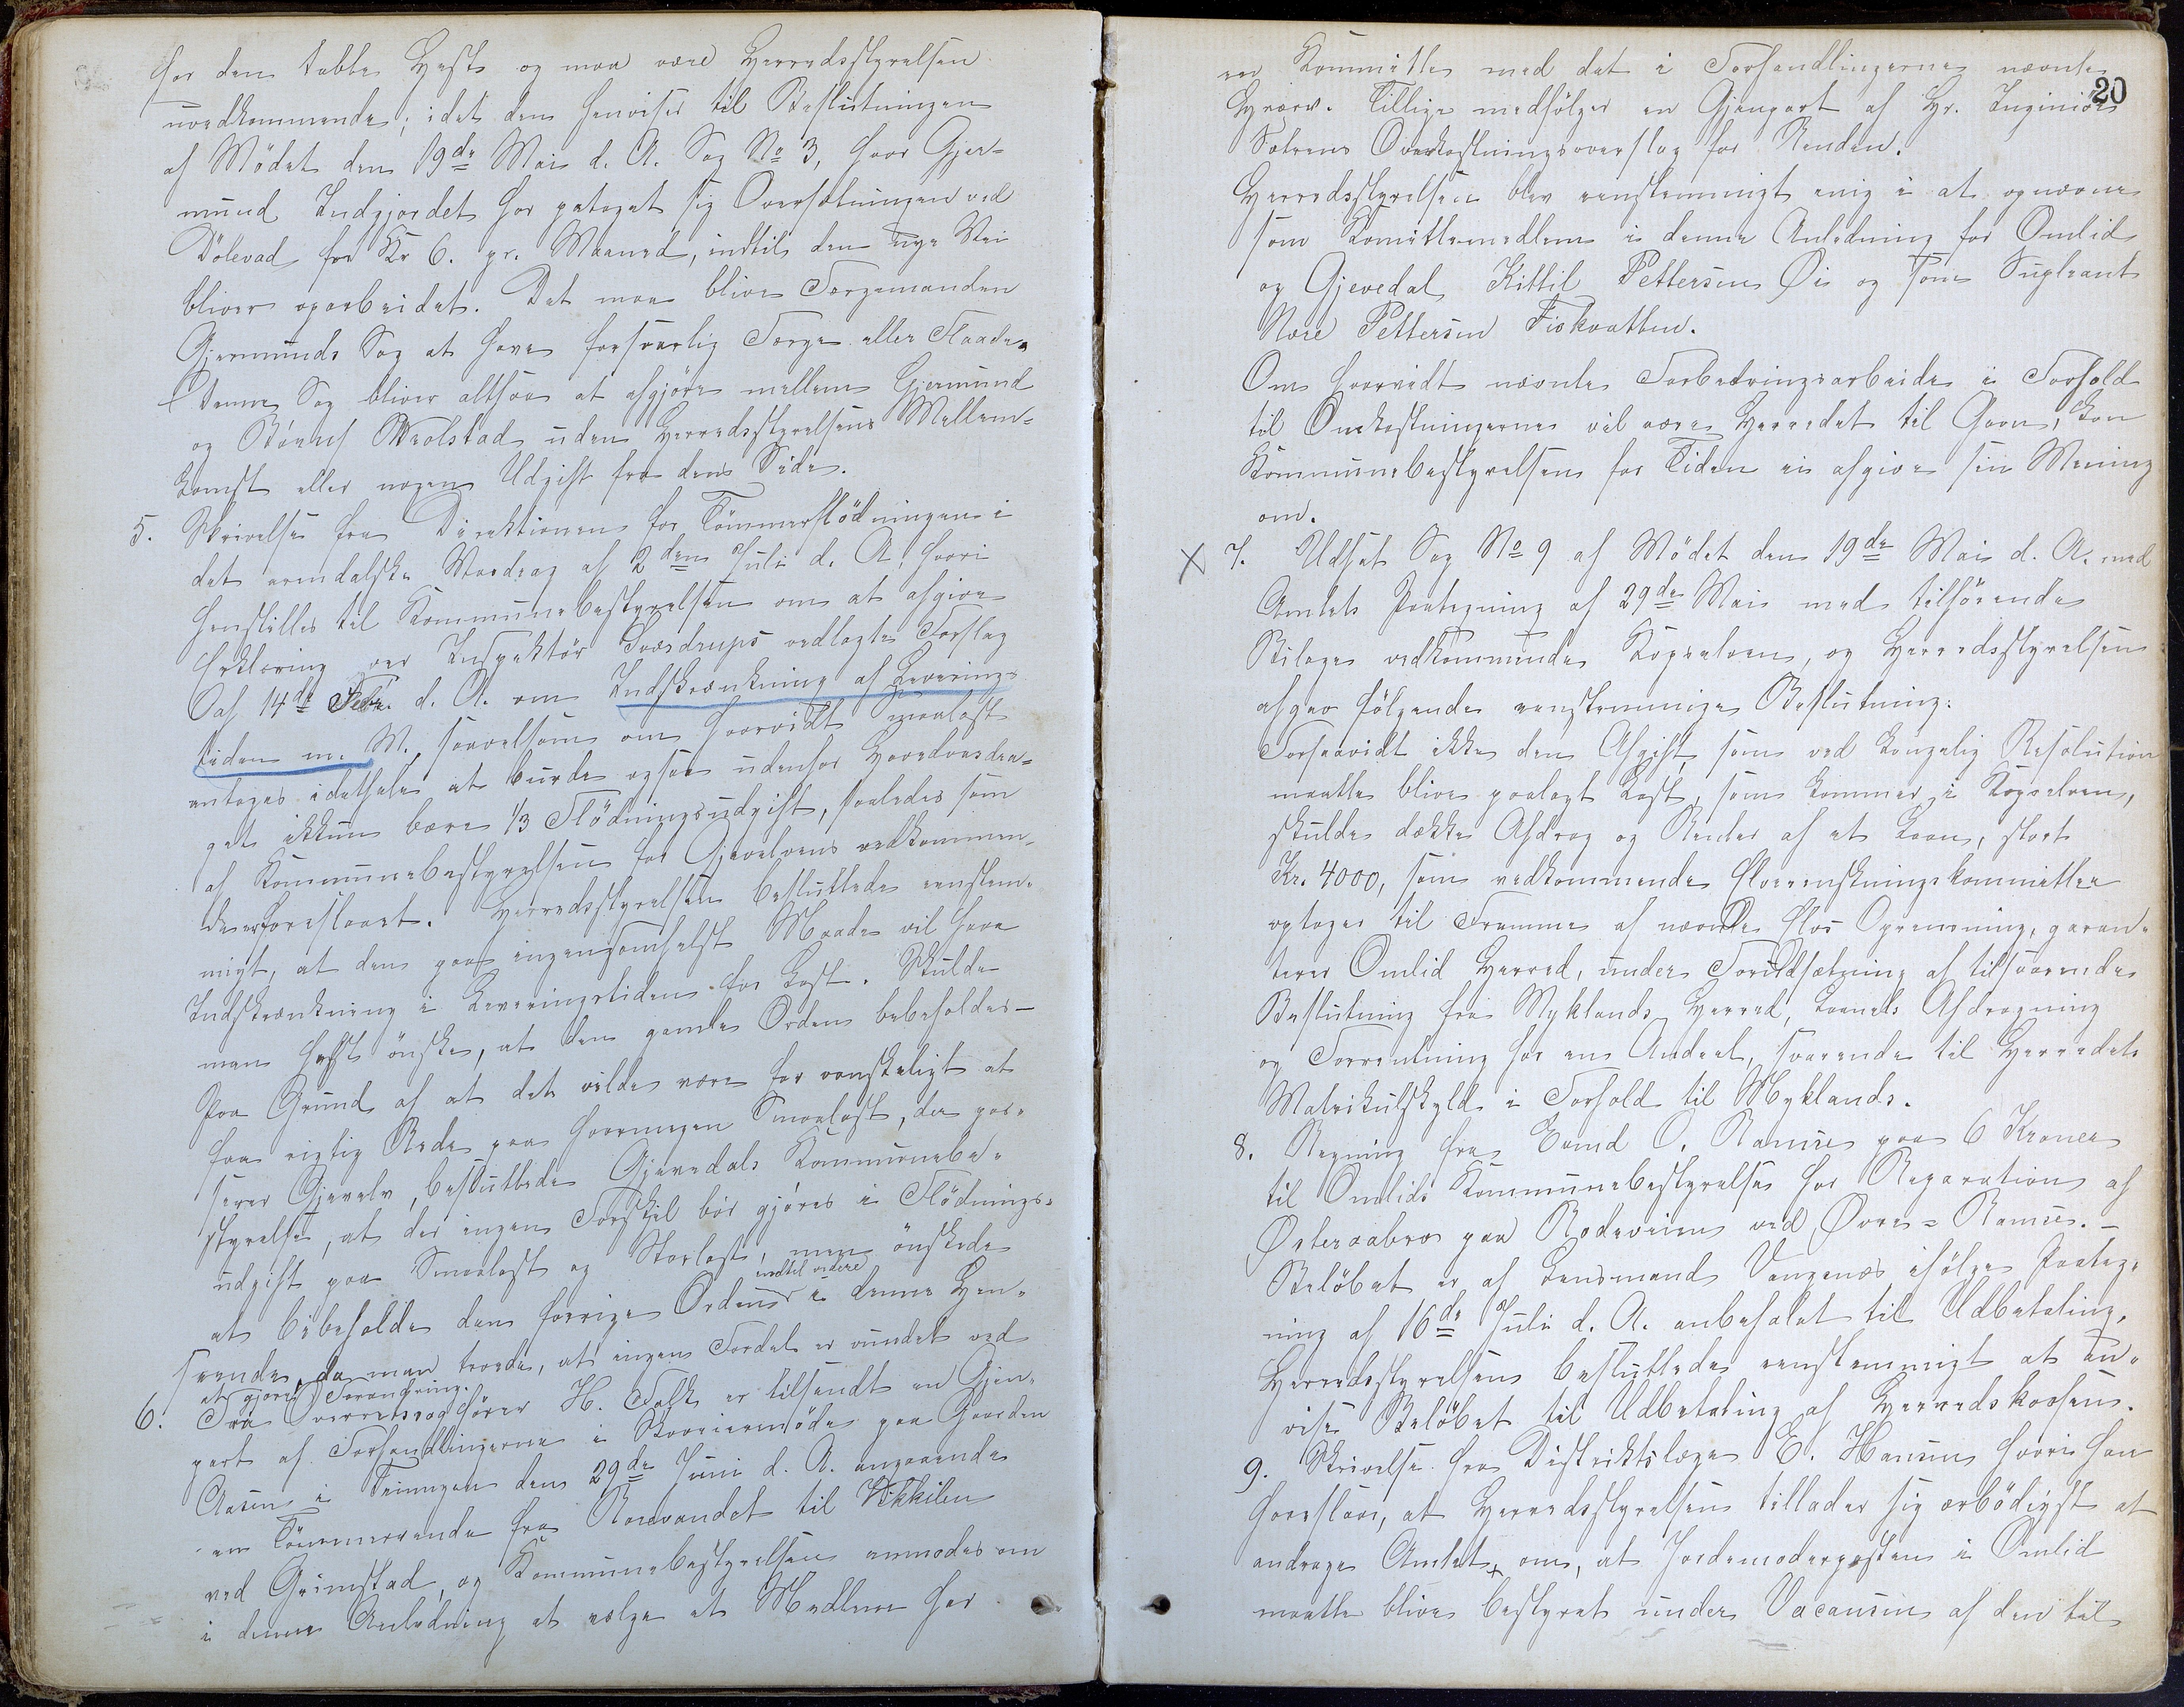 for den tabte Hest og maa være Herredsstyrelsen
uvedkommende; idet den henviser til Beslutningen
af Mødet den 19de Mai d. A. Sag No 3, hvor Gjer-
mund Indgjordet har pataget sig Oversætningen ved
Dölevad for Kr 6. pr. Maaned, indtil den nye Vei
bliver oparbeidet. Det maa blive Færgemanden
Gjermunds Sag at have forsvarlig Færge eller Flaade.
Denne Sag bliver altsaa at afgjöre mellem Gjermund
og uden Herredsstyrelsens Mellem-
komst eller nogen Udgift fra dens Side.
5. Skrivelse fra Direktionen for Tömmerflödningen i
det arendalske Vasdrag af 2den Juli d. A., hvori
henstilles til Kommunebestyrelsen om at afgive
Erklæring over Inspektör Sværdrups vedlagte Forslag
af 14de Febr. d. A. om Indskrænkning af Leverings-
tiden m. M. saavelsom om hvorvidt Smaalast
antages idethele at burde ogsaa udenfor Hovedvasdra-
get ikkun bære 1/3 Flödningsudgift, saaledes som
af Kommunebestyrelsen for Gjevelvens vedkommen-
de er foreslaaet. Herredsstyrelsen besluttede enstem-
migt, at den paa ingensomhelst Maade vil have
Indskrænkning i Leveringstiden for Last. Skulde
man helst önske, at den gamle Orden bebeholdes –
Paa Grund af at det vilde være for vanskeligt at
faa rigtig Rede paa hvormegen Smaalast, der pas-
serer Gjevelv, besluttede Gjevedals Kommunebe-
styrelse, at der ingen Forskjel bör gjöres i Flödnings-
udgift paa Smaalast og Storlast, men önskede
at bibeholde den forrige Orden indtil videre i denne Hen-
seende, da man troede, at ingen Fordel er vundet ved
at gjöre Forandring.
6. Fra Overretssagförer H. Falk er tilsendt en Gjen-
part af Forhandlingerne i Skoveiermöde paa Gaarden
Aasen i den 29de Juni d. A. angaaende
en Tömmerrende fra Rorevandet til Vikkilen
ved Grimstad, og Kommunebestyrelsen anmodes om
i denne Anledning at vælge et Medlem for
20
en Kommitte med det i Forhandlingerne nævnte
Hverv. Tillige medfölger en Gjenpart af Hr. Inginiör
Sætrens Omkostningsoverslag for Renden.
Herredsstyrelsen blev eenstemmigt enig i at opnævne
som Komittemedlem i denne Anledning for Omlid
og Gjevedal Kittil Pettersen Öi og som Supleant
Nære Pettersen Fiskvatten.
Om hvorvidt nævnte Forbedringsarbeide i Forhold
til Omkostningerne vil være Herredet til Gavn, kan
Kommunebestyrelsen for Tiden ei afgive sin Mening
om.
X 7. Udsat Sag No 9 af Mödet den 19de Mai d. A. med
Amtets Paategning af 29de Mai med tilhörende
Bilage vedkommende, og Herredsstyrelsen
afgav fölgende eenstemmige Beslutning:
Forsaavidt ikke den Afgift som ved kongelig Resolution
maatte blive paalagt Last, som kommer i,
skulde dække Afdrag og Renter af et Laan, stort
Kr. 4000, som vedkommende Elverenskningskommittee
optager til Fremme af nævnte Elvs Oprensning, garan-
terer Omlid Herred, under Forudsætning af tilsvarende
Beslutning fra Myklands Herred, Laanets Afdragning
og Forrentning for en Andeel, svarende til Herredets
Matrikulskyld i Forhold til Myklands.
8. Regning fra Eivind O. Ramse paa 6 Kroner
til Omlids Kommunebestyrelse for Reparation af
Österaabro paa Rodeveien ved Övre-Ramse. –
Belöbet er af Lensmand Vangenæs ifölge Paateg-
ning af 16de Juli d. A. anbefalet til Udbetaling.
Herredsstyrelsen besluttede eenstemmigt at an-
vise Belöbet til Udbetaling af Herredskassen.
9. Skrivelse fra Distriktslæge E. Hansen hvori han
foreslaar, at Herredsstyrelsen tillader sig ærbödigst at
andrage Amtet om, at Jordemoderposten i Omlid
maatte blive bestyret under Vacansen af den til